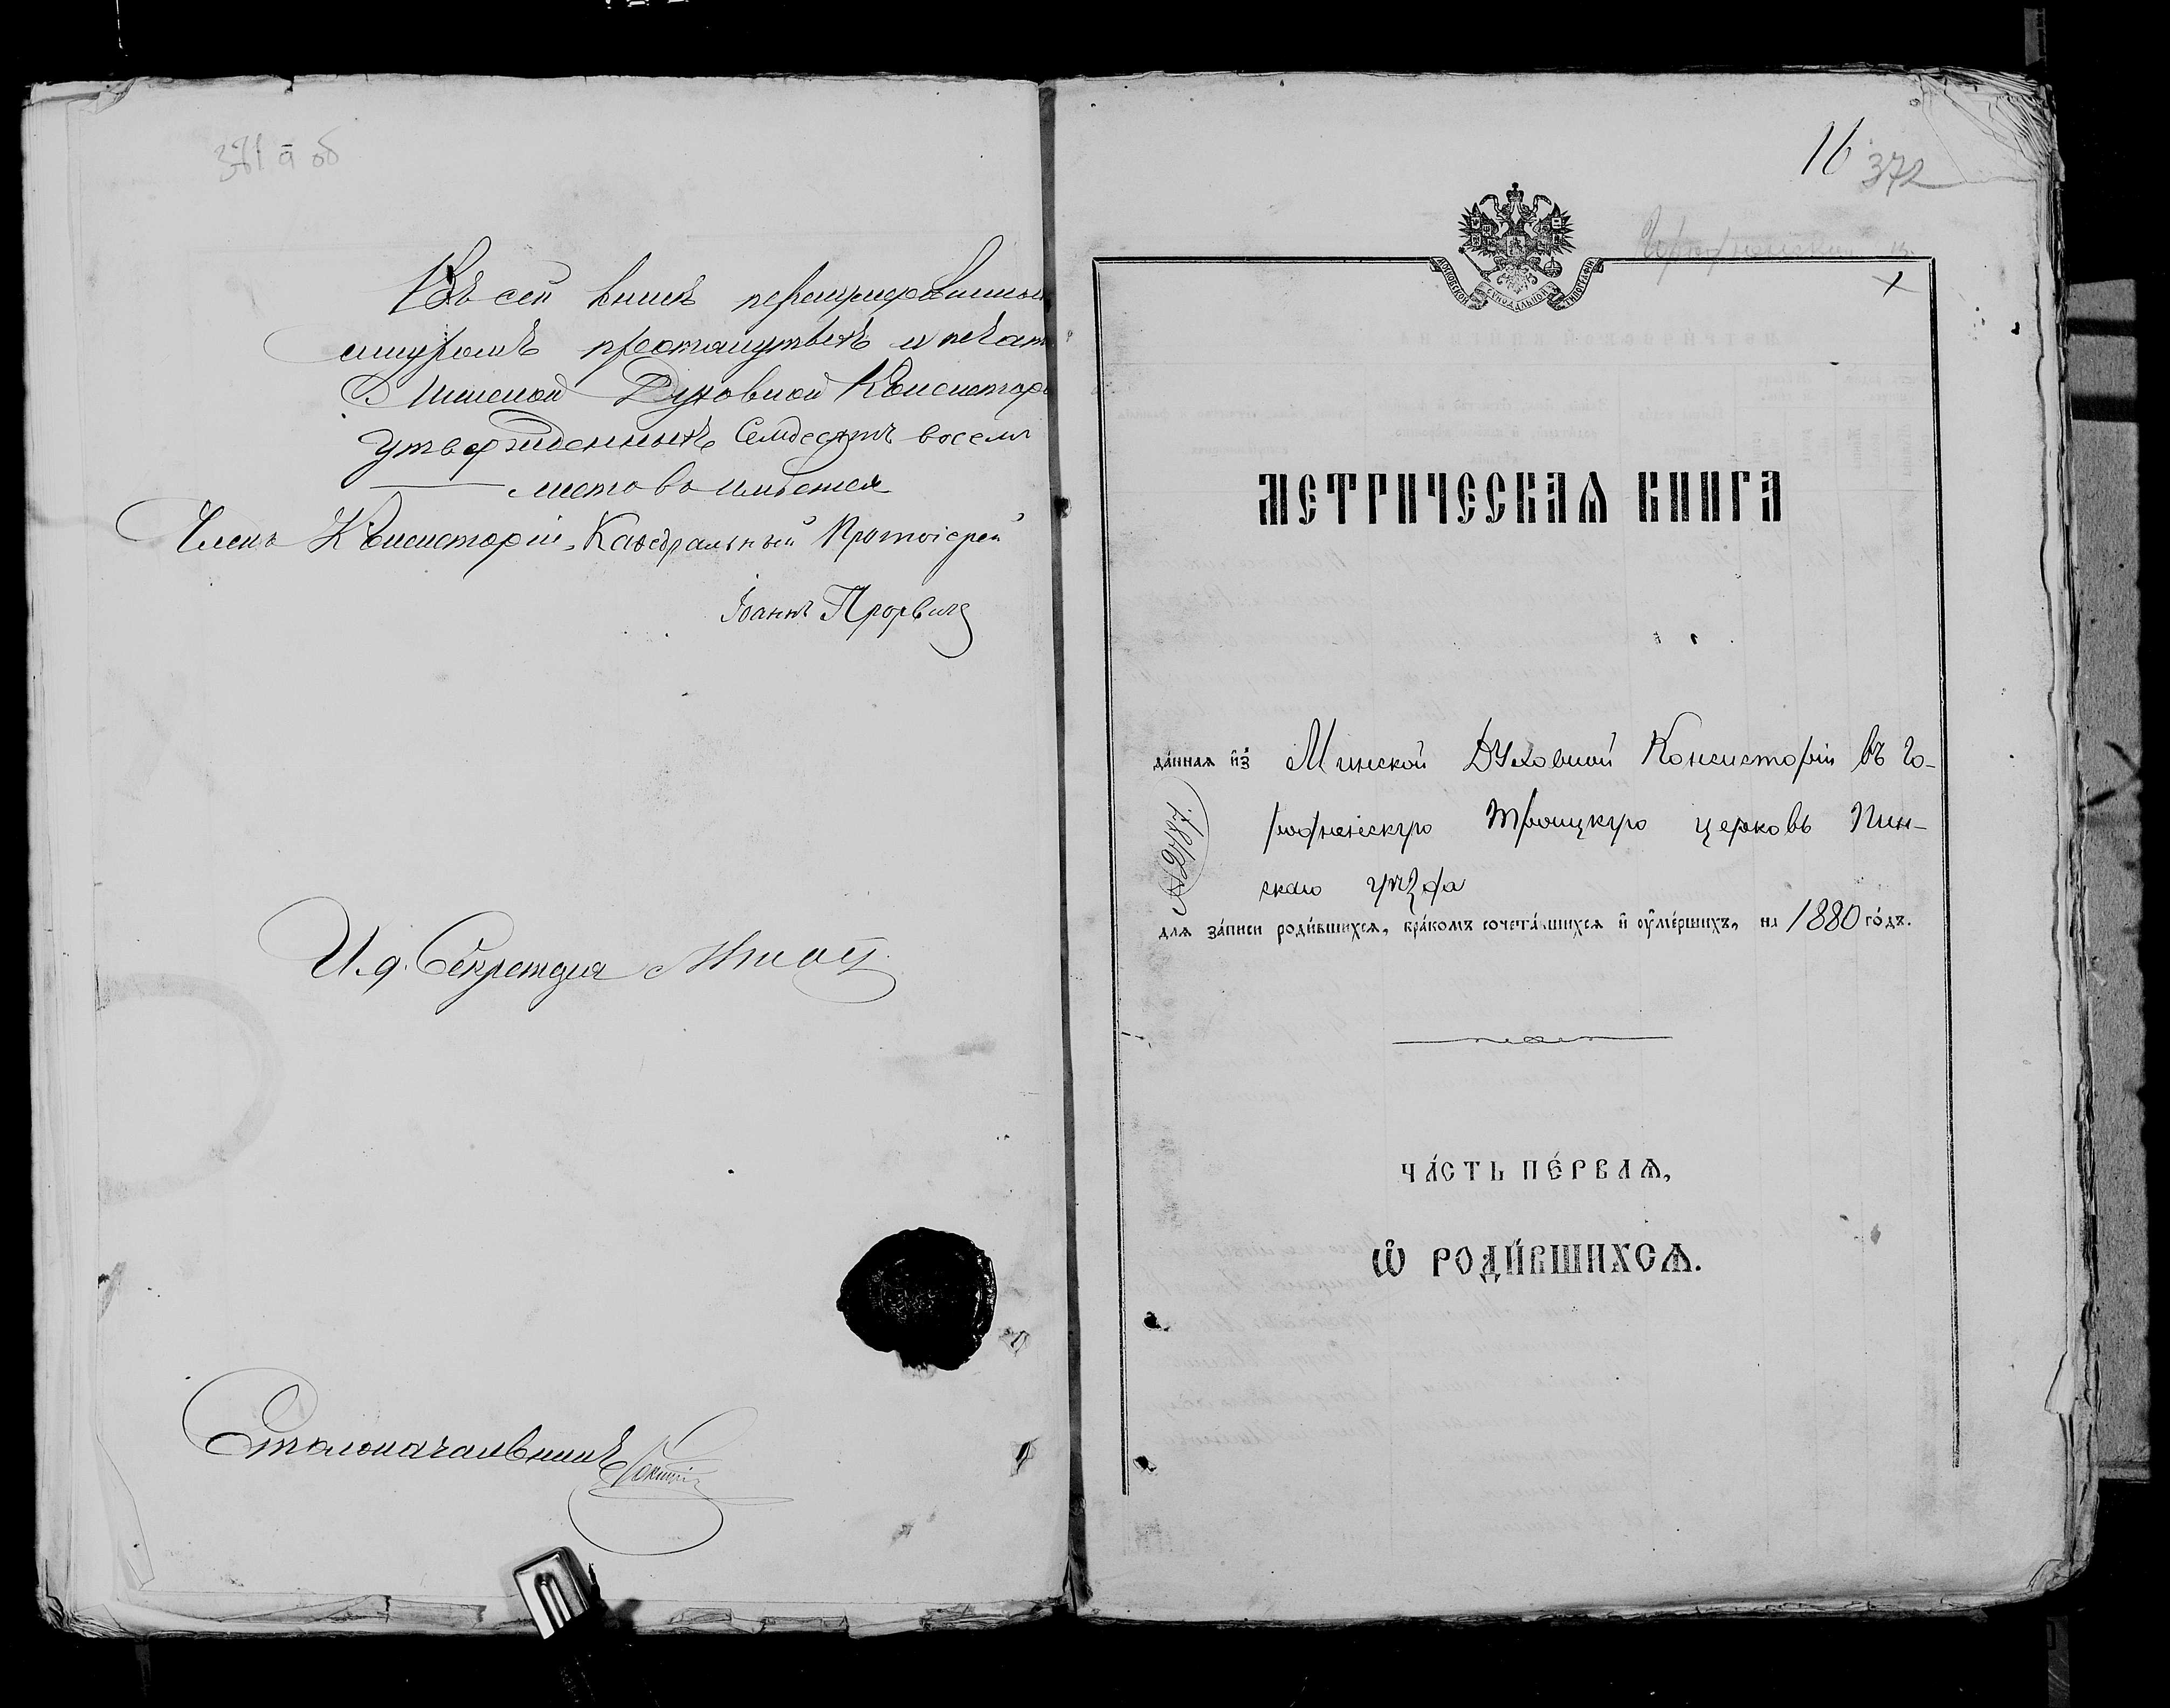 371 а об
Въ сей книгѣ перешнурованной
шнуромъ простанутыхъ и печат
Минской Духовной Консистор
утвержденныхъ Семдесятъ восемь
листовъ имѣется
Членъ Консисторіи, Каѳедральный Протоіерей
Іоаннъ Прорвичъ
И. д. Секретаря
Столоначальникъ
16
372
МОСКОВСКОЙ СѴНОДАЛЬНОЙ ТИПОГРАФІИ
МЕТРИЧЕСКАѦ КНИГА
да́нная и҆з̾ Минской Духовной Консисторіи въ Го-
родненскую Троицкую церковь Пин-
скаго уѣзда
№ 2787.
для за́писи роди́вшихся, бра́комъ сочета́вшихся и҆ ᲂу҆ме́ршихъ, на 1880 го́дъ.
ЧА́СТЬ ПЕ́РВАѦ,
Ѡ҆ РОДИ́ВШИХСѦ.